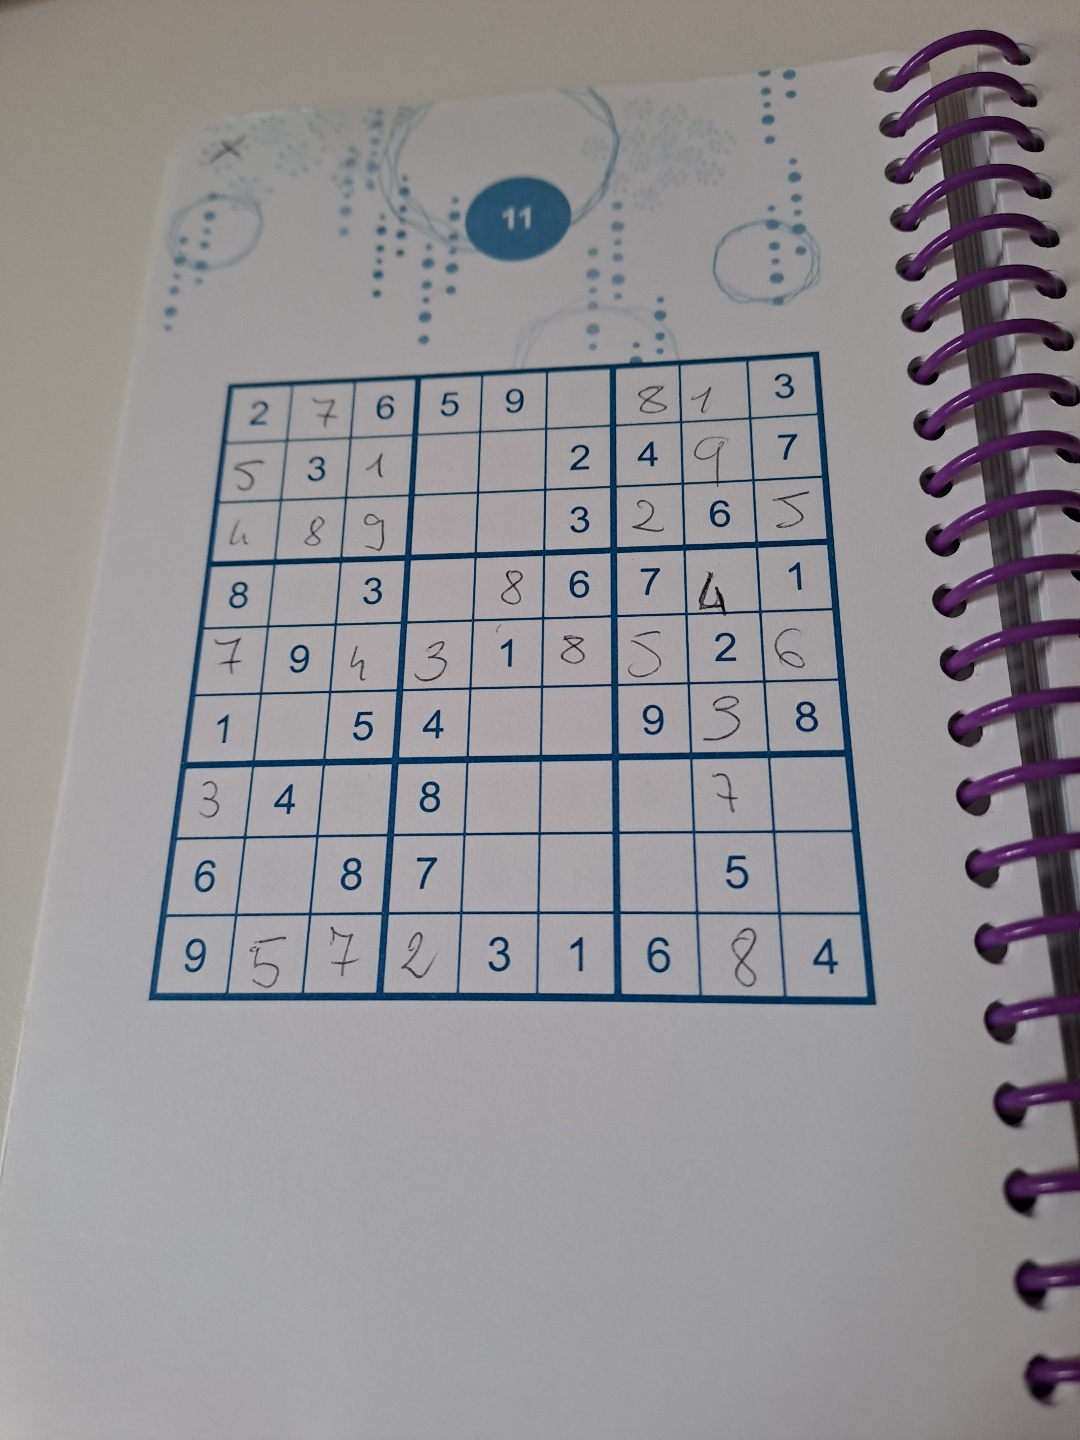 11
2 7 6 5 9 8 1 3
5 3 1 2 4 9 7
4 8 9 3 2 6 5
8 3 8 6 7 4 1
7 9 4 3 1 8 5 2 6
1 5 4 9 3 8
3 4 8 7
6 8 7 5
9 5 7 2 3 1 6 8 4